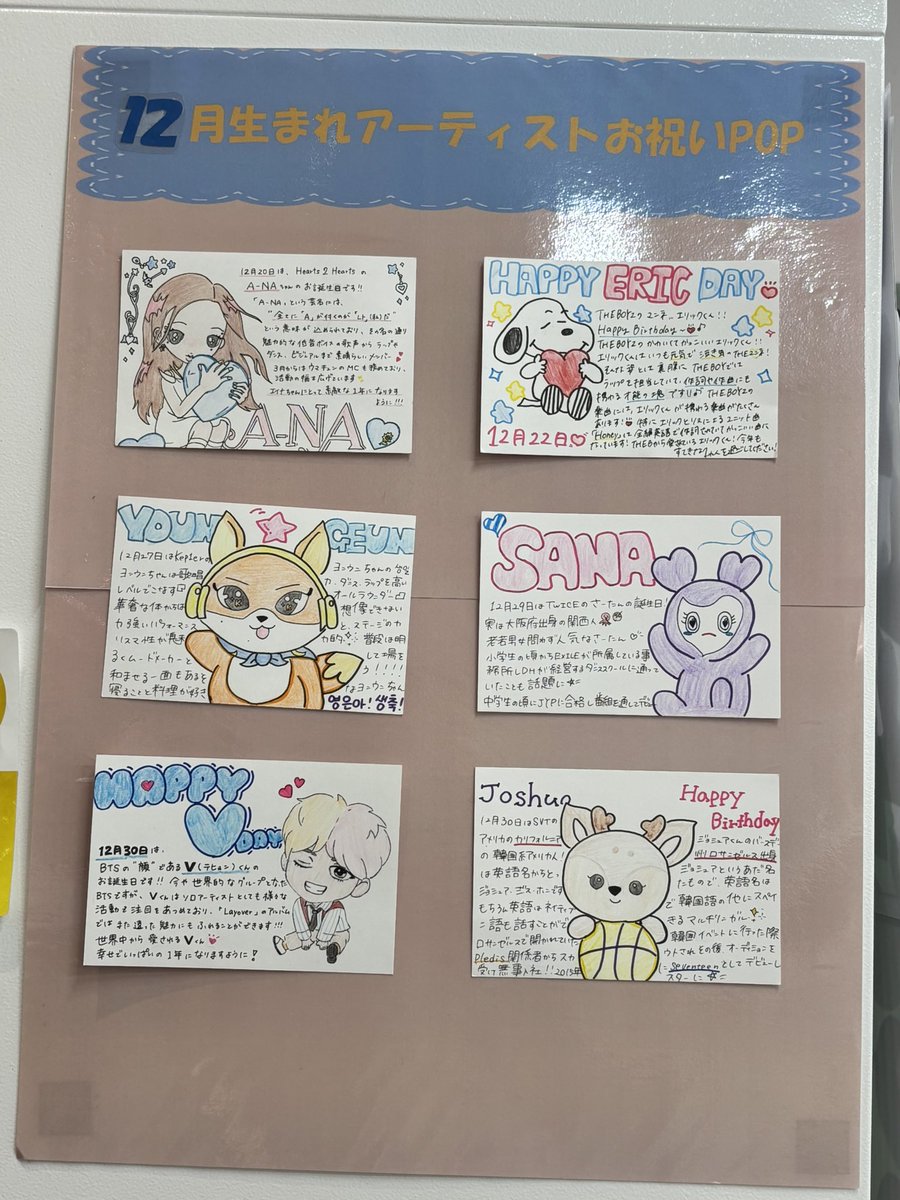 12月生まれアーティストお祝いPOP
12月20日は、Hearts2Heartsの
A-NAちゃんのお誕生日です!!
「A-NA」という芸名には、
"全てに「A」が付くのが「나(私)だ"
という意味が込められており、その名の通り
魅力的な低音ボイスの歌声からラップや
ダンス、ビジュアルまで素晴らしいメンバー
3月からはウマチュンのMCも務めており、
活動の幅を広げています
エイナちゃんにとって素敵な1年になります
ように!!!
A-NA
HAPPY ERIC DAY
THE BOYZの マンネ、エリックくん!!
Happy Birthday~
THE BOYZの かわいくてかっこいいエリックくん!!
エリックくんはいつも元気で
THE BOYZでは
ラップを担当していて、作詞や作曲にも
携わる才能の塊です!! THE BOYZの
楽曲には、エリックくんが携わる楽曲がたくさん
あります! 特に
ユニット曲
「Honey」は全編英語で
12月22日
YOUNGEUN
12月27日はKep1erの
ヨンウンちゃんは歌唱
レベルでこなす
華奢な体からは
力強いパフォーマンス
ヨンウンちゃんの
力、ダンス、ラップを高い
オールラウンダー
想像できない
と、ステージのカ
普段は明
るくムードメーカーと
して場を
和ませる一面もあると
寝ることと料理が好き
なヨンウンちゃん
영은아! 생축!
SANA
12月29日はTWICEのさーたんの誕生日
実は大阪府出身の関西人
老若男女問わず人気なさーたん
小学生の頃からEXILEが所属している事
務所LDHが経営するダンススクールに通って
いたことも話題に
中学生の頃にJYPに合格し番組を通してデビュー
HAPPY V DAY
12月30日は、
BTSの"顔"であるV(テヒョン)くんの
お誕生日です!! 今や世界的なグループとなった
BTSですが、Vくんはソロアーティストとしても様々な
活動で注目をあつめており、「Layover」のアルバム
ではまた違った魅力にもふれることができます!!!
世界中から愛されるVくん
幸せでいっぱいの1年になりますように!
Joshua
Happy
Birthday
12月30日はSVTの
ジョシュアくんのバースデー
アメリカのカリフォルニア
州ロサンゼルス出身
の韓国系アメリカ人!
ジョシュアというあだ名
は英語名からとっ
たもので、英語名は
ジョシュア・ジス・ホンです
もちろん英語はネイティブ
で韓国語の他にスペイン
語も話すことがで
きるマルチリンガル
ロサンゼルスで開かれていた
韓国イベントに行った際
Pledis関係者からスカ
ウトされその後、オーディションを
受けて無事入社!! 2015年
にSeventeenとしてデビューし
スターに